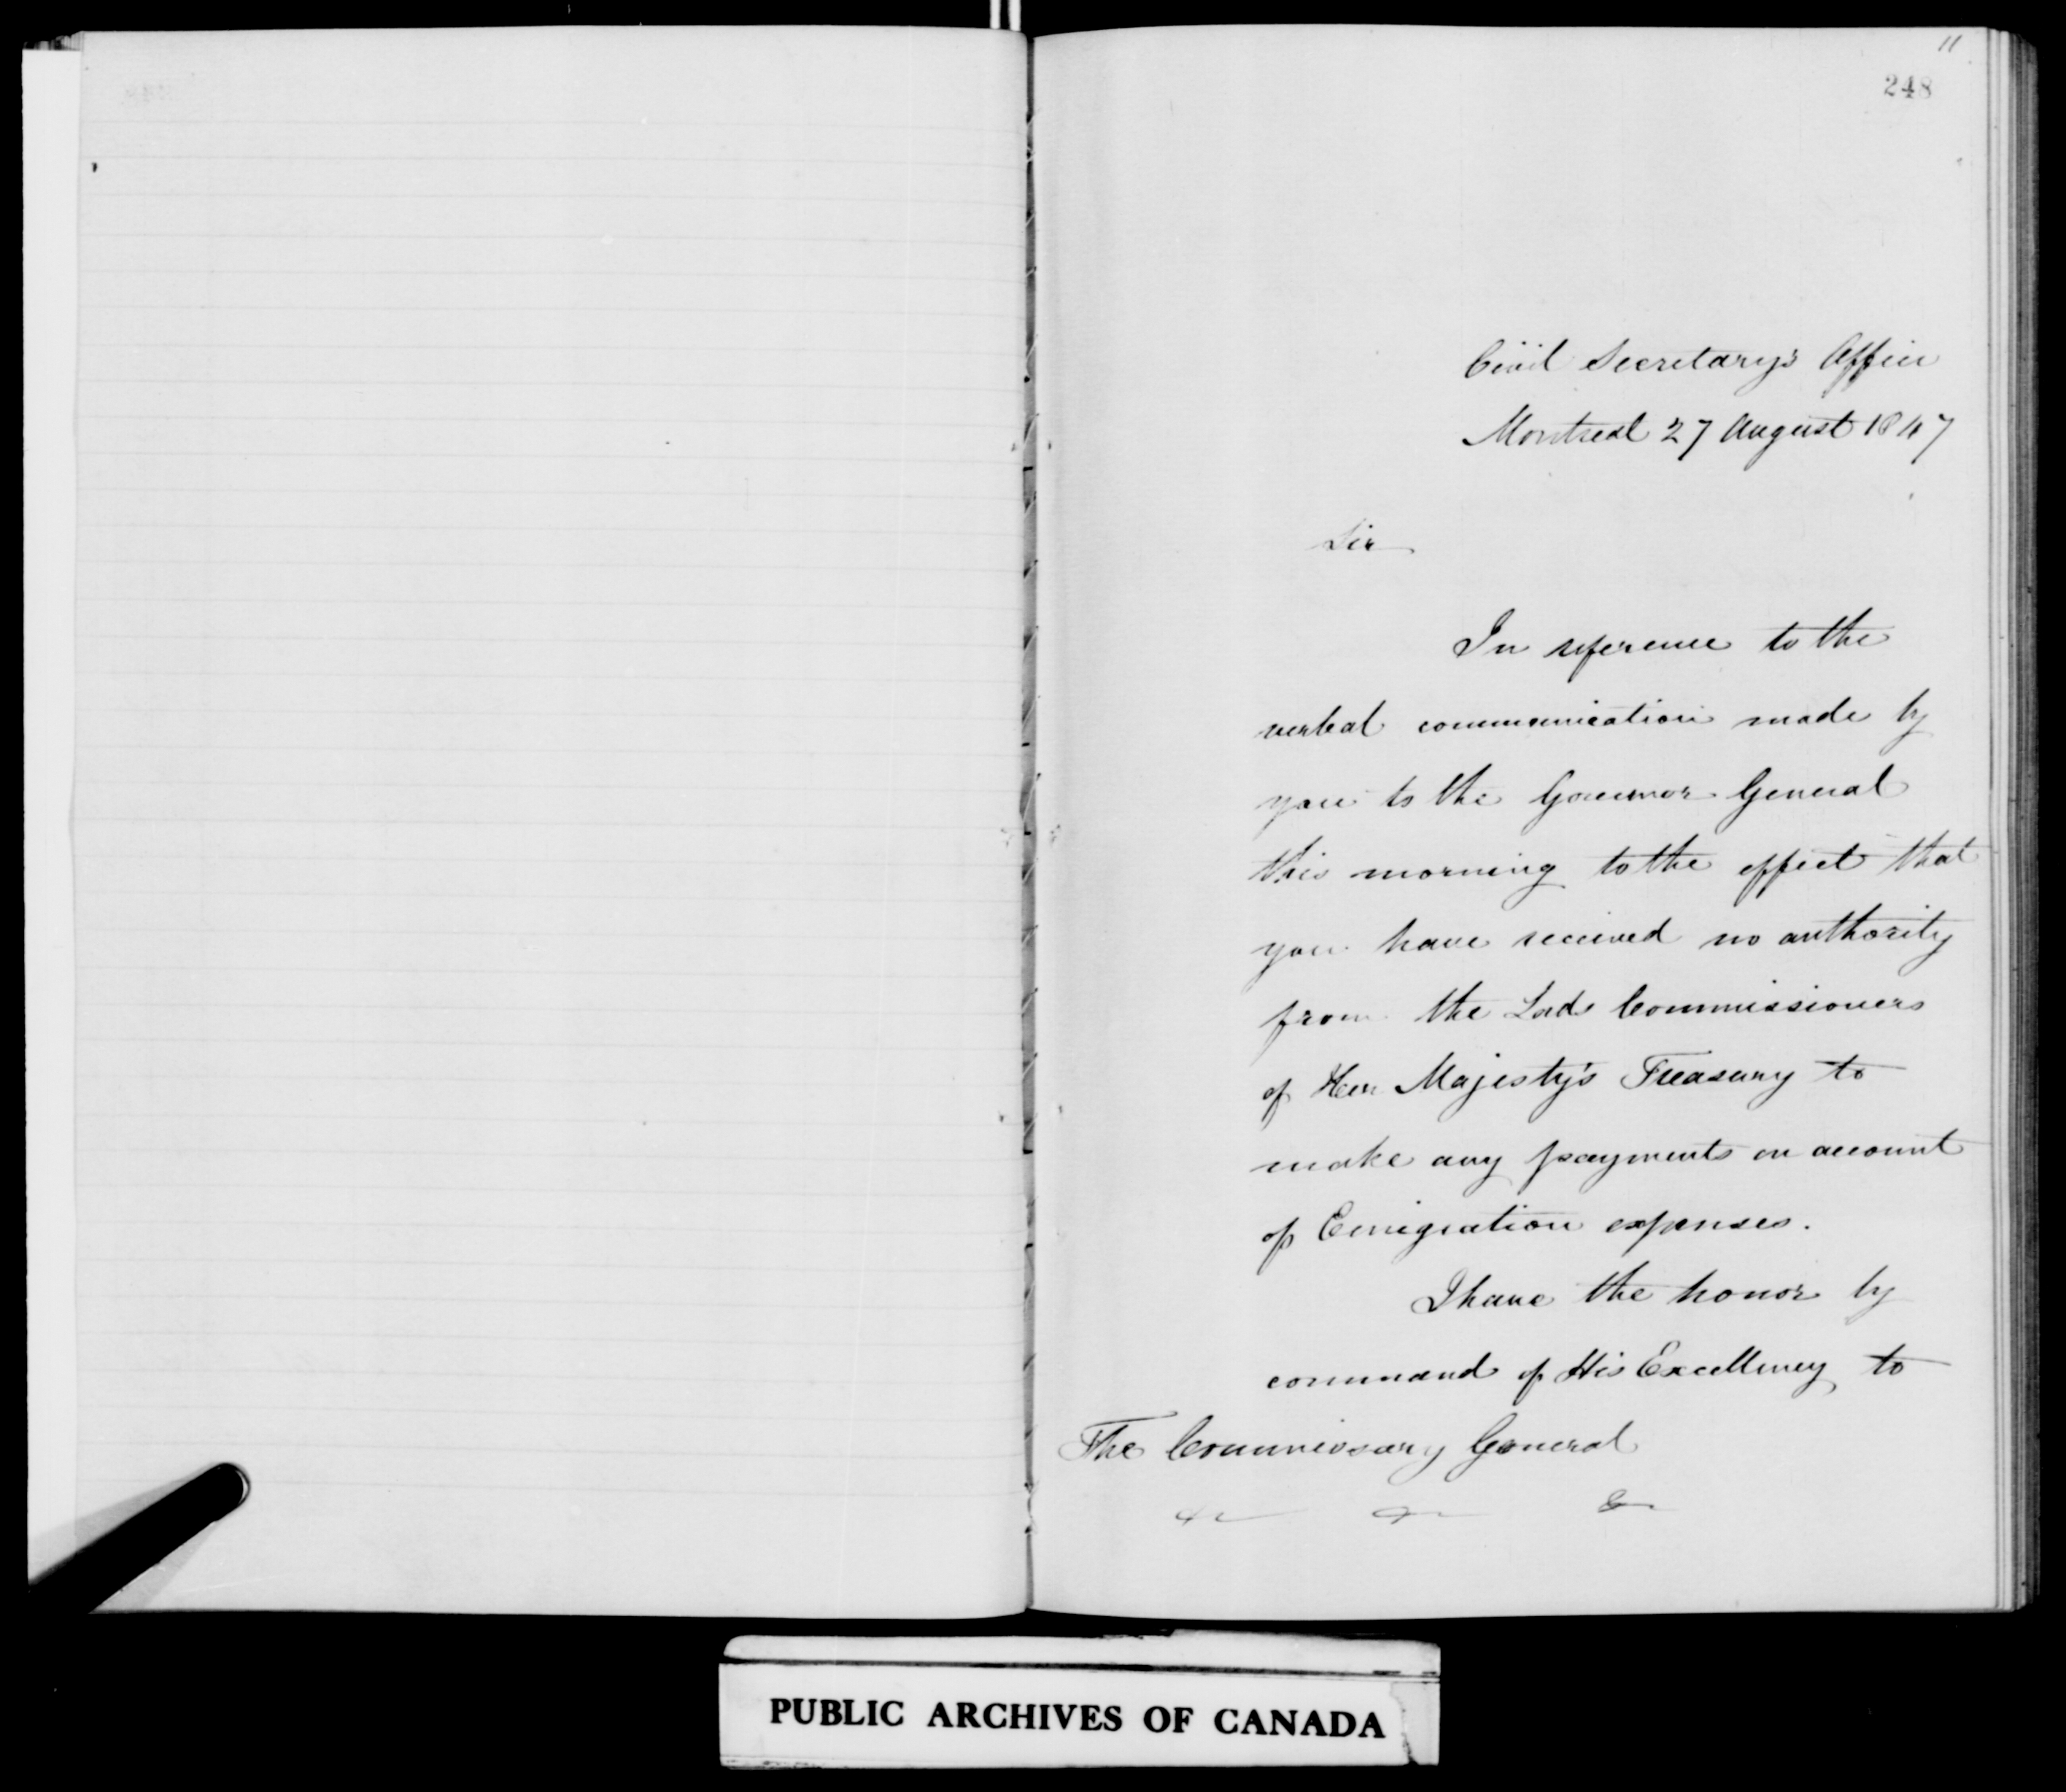 11
248
Civil Secretary's Office
Montreal 27 August 1847
Sir
In reference to the
verbal communication made by
you to the Governor General
this morning to the effect that
you have received no authority
from the Lords Commissioners
of Her Majesty's Treasury to
make any payments on account
of Emigration expenses.
I have the honor by
command of His Excellency to
The Commissary General
&c &c &c
PUBLIC ARCHIVES OF CANADA